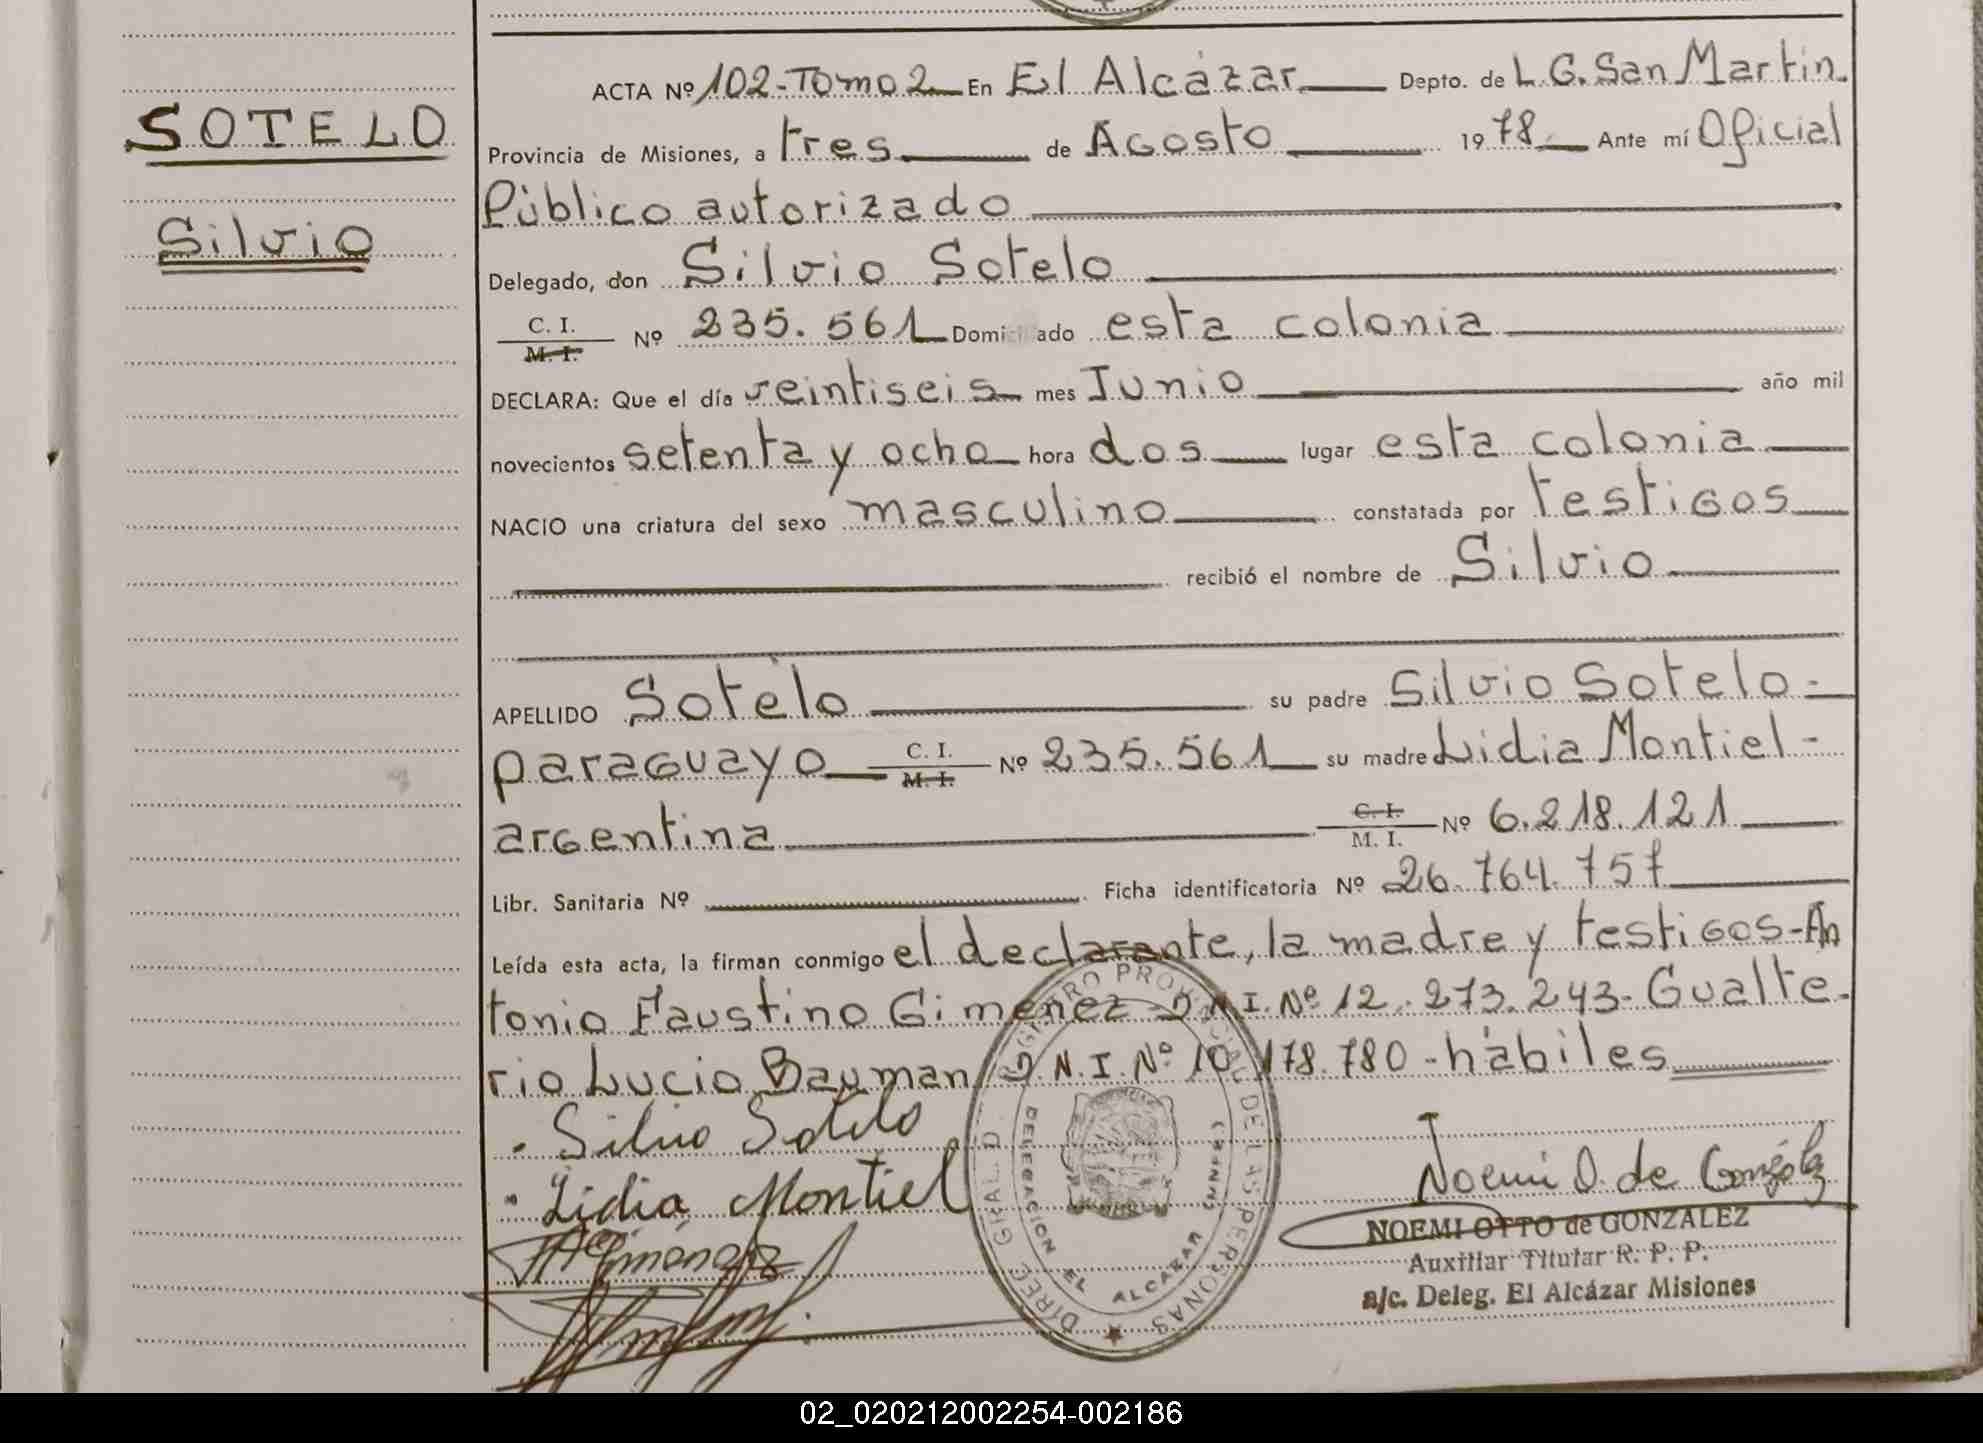 ACTA Nº 102-Tomo 2 En El Alcázar Depto. de L. G. San Martin.
SOTELO
Provincia de Misiones, a tres de Agosto 1978 Ante mí Oficial
Público autorizado
Silvio
Delegado, don Silvio Sotelo
C. I.
M. I. Nº 235.561 Domiciliado esta colonia
DECLARA: Que el día veintiseis mes Junio año mil
novecientos setenta y ocho hora dos lugar esta colonia
NACIO una criatura del sexo masculino constatada por testigos
recibió el nombre de Silvio
APELLIDO Sotelo su padre Silvio Sotelo-
paraguayo C. I. M. I. Nº 235.561 su madre Lidia Montiel-
argentina C. I. M. I. Nº 6.218.121
Libr. Sanitaria Nº Ficha identificatoria Nº 26.764.757
Leída esta acta, la firman conmigo el declarante, la madre y testigos-An
tonio Faustino Gimenez D.N.I. Nº 12.273.243-Gualte-
rio Lucio Bauman D.N.I. Nº 10.178.780-hábiles
Silvio Sotelo
Lidia Montiel
Noemi O. de González
NOEMI OTTO de GONZALEZ
Auxiliar Titular R. P. P.
a/c. Deleg. El Alcázar Misiones
DIREC. GRAL. D. REGISTRO PROVINCIAL DE LAS PERSONAS
DELEGACION EL ALCAZAR
02_020212002254-002186